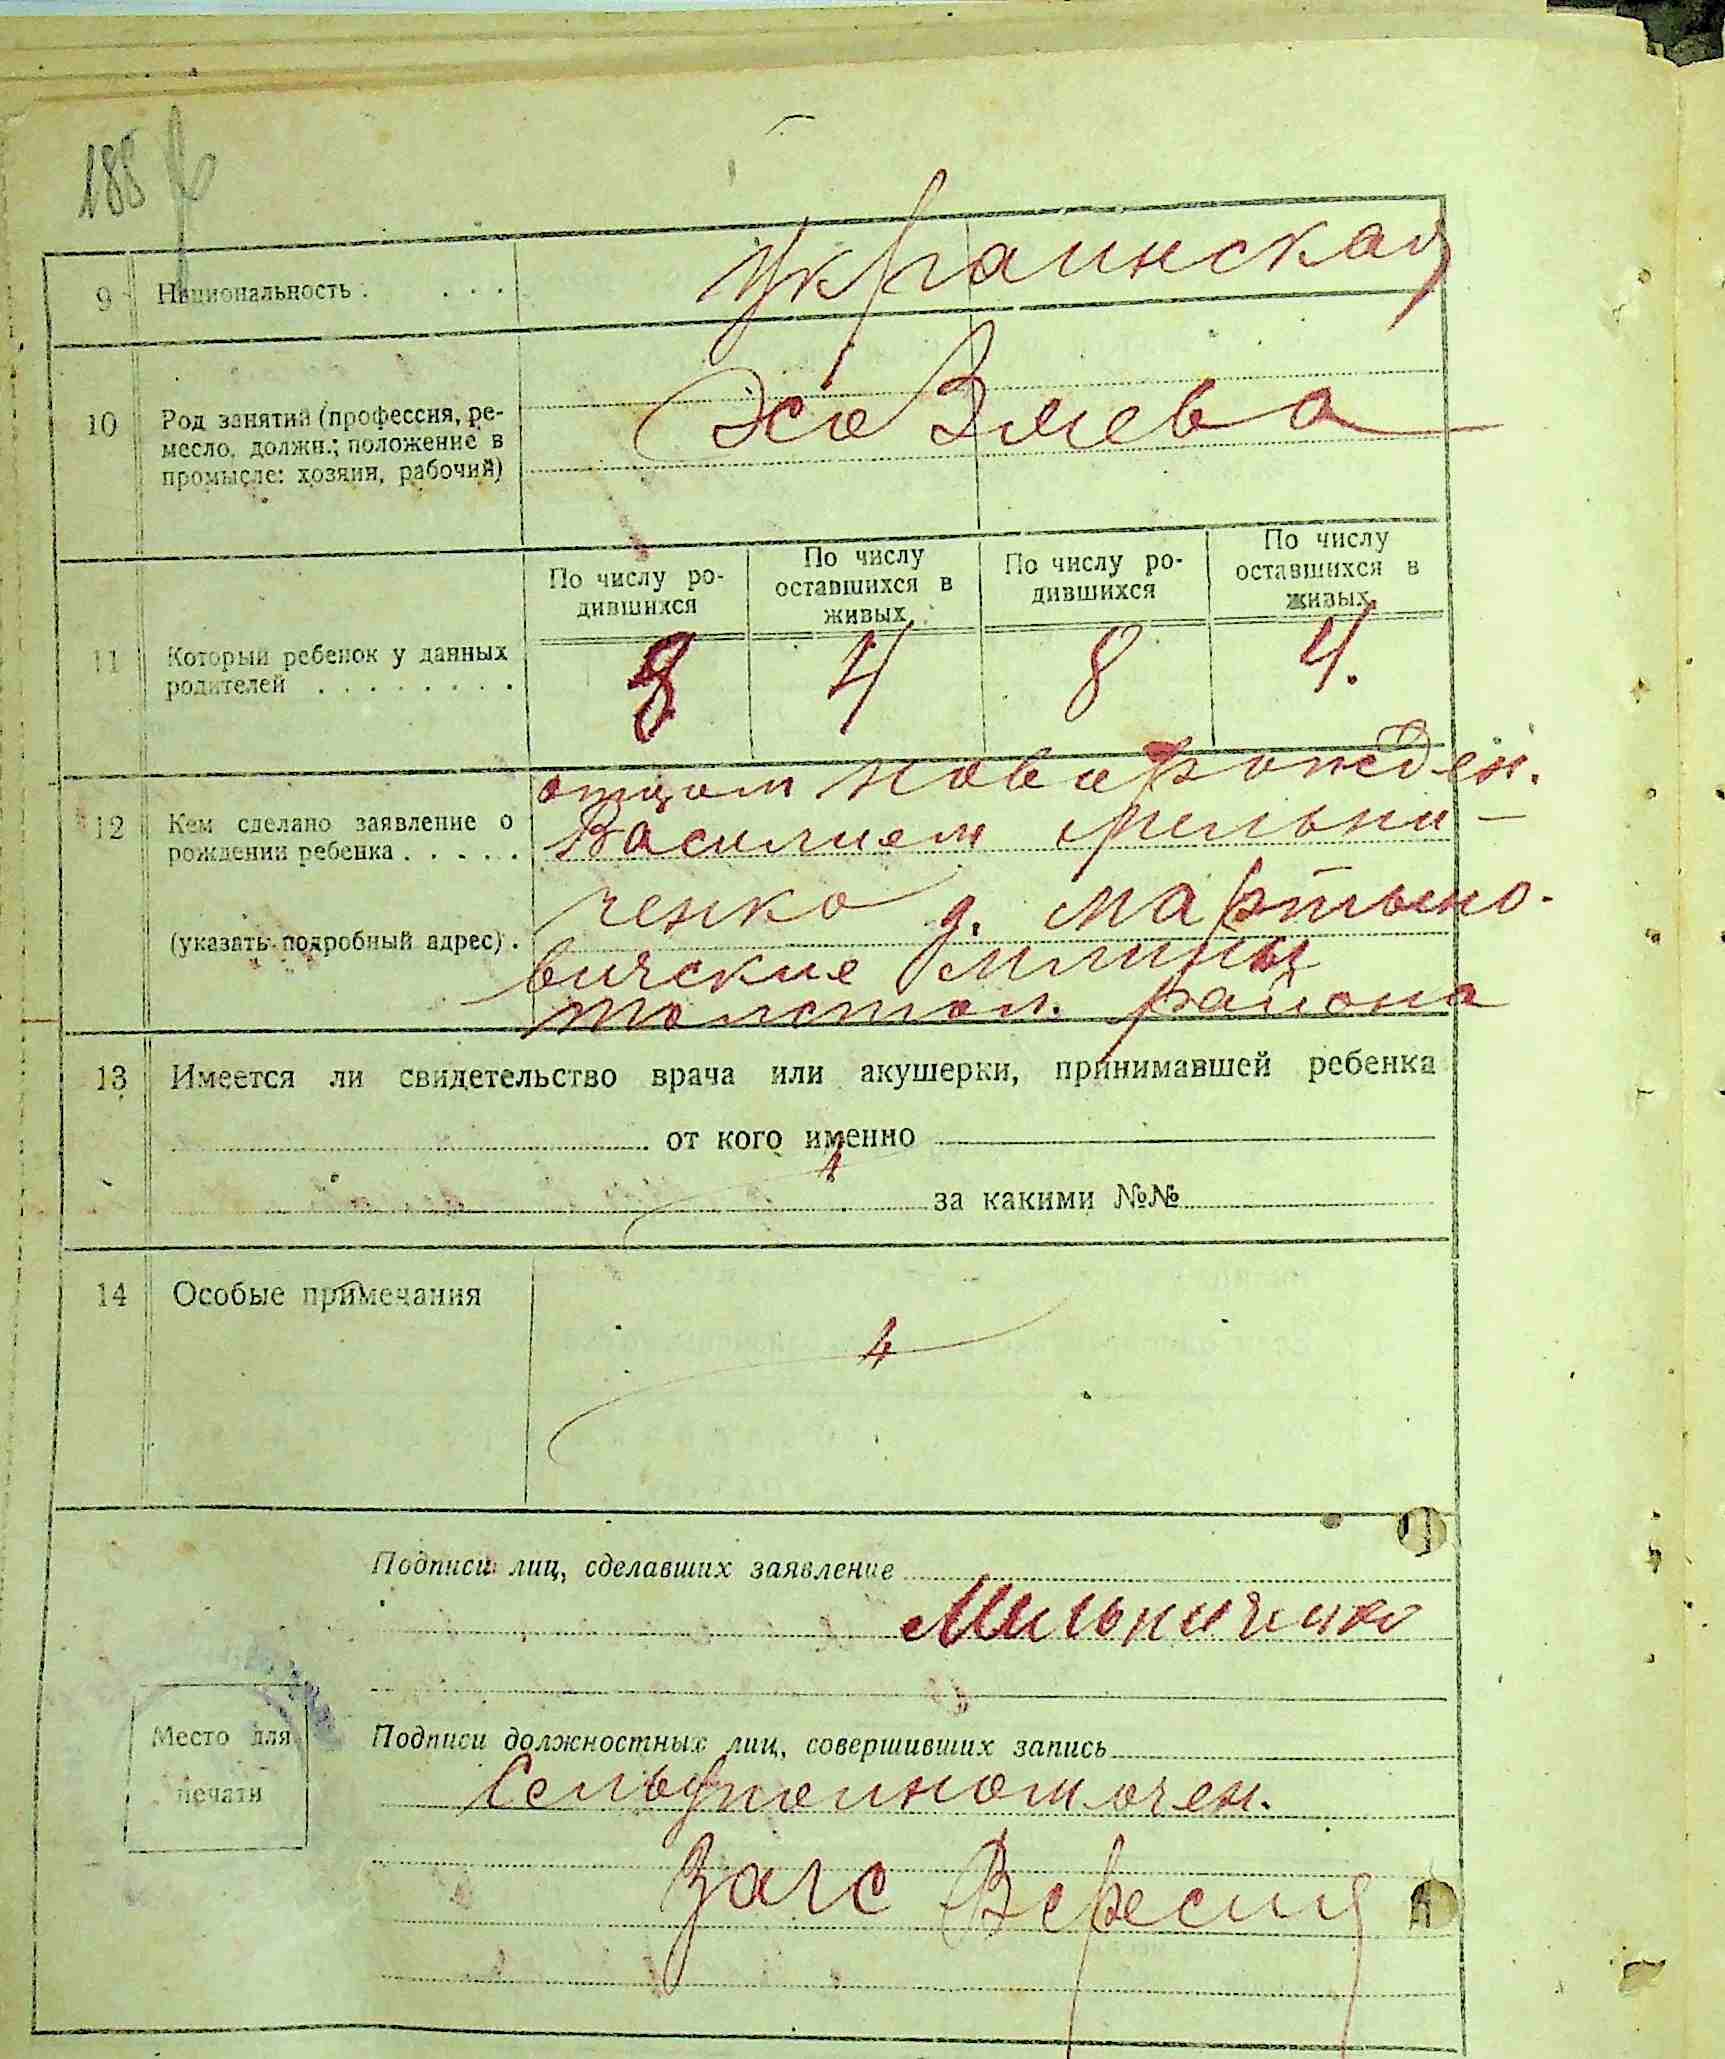 188
9 Национальность . . . . украинская
10 Род занятий (профессия, ре-
месло, должн.; положение в
промысле: хозяин, рабочий)
По числу ро-
дившихся
По числу
оставшихся в
живых
По числу ро-
дившихся
По числу
оставшихся в
живых
11 Который ребенок у данных
родителей . . . . . . . .
8 4 8 4.
отцом новорожден.
12 Кем сделано заявление о
рождении ребенка . . . . .
Василием Мельни-
ченко д. Мартыно-
(указать подробный адрес) .
вичские Млины
района
13 Имеется ли свидетельство врача или акушерки, принимавшей ребенка
от кого именно
за какими №№
14 Особые примечания
Подписи лиц, сделавших заявление
Мильниченко
Место для
печати
Подписи должностных лиц, совершивших запись
Сельуполномочен.
Загс